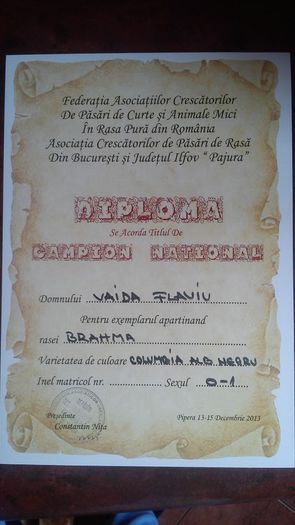 Federația Asociațiilor Crescătorilor
De Păsări de Curte și Animale Mici
În Rasa Pură din România
Asociația Crescătorilor de Păsări de Rasă
Din București și Județul Ilfov “ Pajura”
DIPLOMA
Se Acorda Titlul De
CAMPION NATIONAL
Domnului VAIDA FLAVIU
Pentru exemplarul apartinand
rasei BRAHMA
Varietatea de culoare COLUMBIA NEGRU
Inel matricol nr. .................... Sexul 0-1
Președinte
Constantin Nița
Pipera 13-15 Decembrie 2013